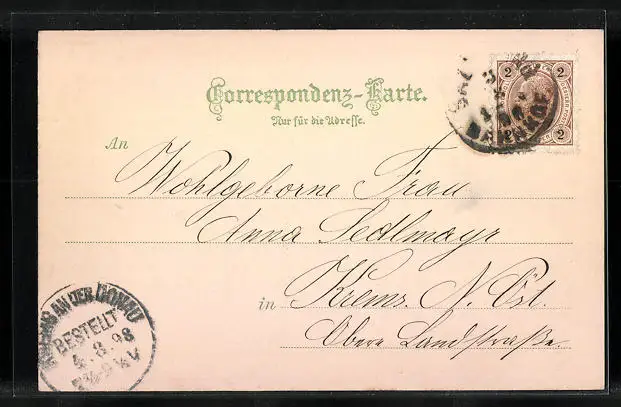 Correspondenz-Karte.
Nur für die Adresse.
An
Wohlgeborne Frau
Anna Sedlmayr
in Krems. N. Öst.
Obere Landstraße.
2 2
2 2
AN DER DONAU
BESTELLT
4.8.98